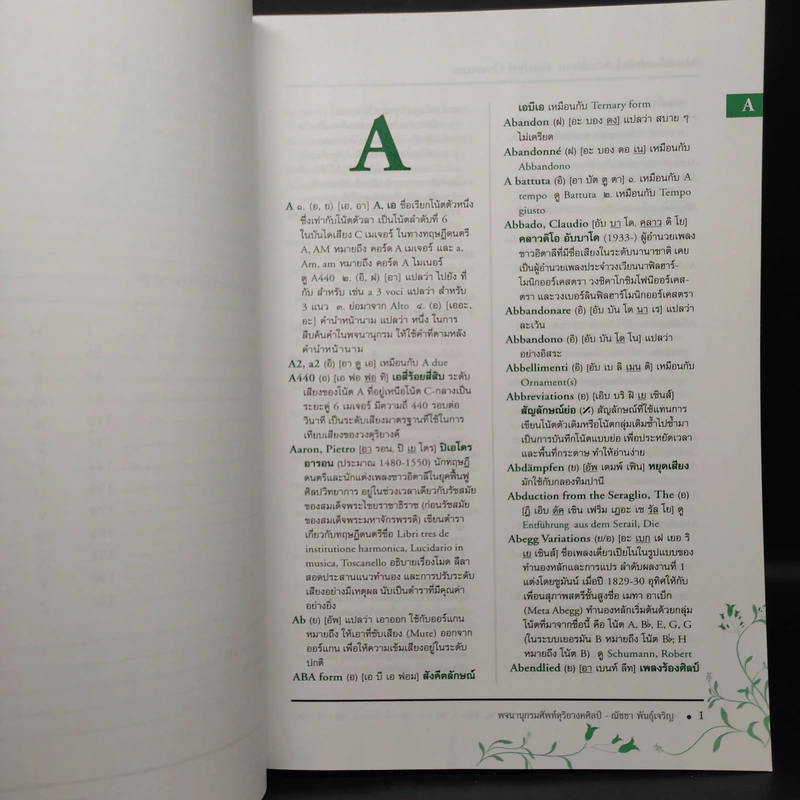 A
A ๑. (อ, ย) [เอ, อา] A, เอ ชื่อเรียกโน้ตตัวหนึ่ง
ซึ่งเท่ากับโน้ตตัวลา เป็นโน้ตลำดับที่ 6
ในบันไดเสียง C เมเจอร์ ในทางทฤษฎีดนตรี
A, AM หมายถึง คอร์ด A เมเจอร์ และ a,
Am, am หมายถึง คอร์ด A ไมเนอร์
ดู A440 ๒. (อิ, ฝ) [อา] แปลว่า ไปยัง ที่
กับ สำหรับ เช่น a 3 voci แปลว่า สำหรับ
3 แนว ๓. ย่อมาจาก Alto ๔. (อ) [เออะ,
อะ] คำนำหน้านาม แปลว่า หนึ่ง ในการ
สืบค้นคำในพจนานุกรม ให้ใช้คำที่ตามหลัง
คำนำหน้านาม
A2, a2 (อิ) [อา ดู เอ] เหมือนกับ A due
A440 (อ) [เอ ฟอ ฟอ ที] เอสี่ร้อยสี่สิบ ระดับ
เสียงของโน้ต A ที่อยู่เหนือโน้ต C-กลางเป็น
ระยะคู่ 6 เมเจอร์ มีความถี่ 440 รอบต่อ
วินาที เป็นระดับเสียงมาตรฐานที่ใช้ในการ
เทียบเสียงของวงดุริยางค์
Aaron, Pietro [อา รอน, ปิ เย โตร] ปิเอโตร
อารอน (ประมาณ 1480-1550) นักทฤษฎี
ดนตรีและนักแต่งเพลงชาวอิตาลีในยุคฟื้นฟู
ศิลปวิทยาการ อยู่ในช่วงเวลาเดียวกับรัชสมัย
ของสมเด็จพระไชยราชาธิราช (ก่อนรัชสมัย
ของสมเด็จพระมหาจักรพรรดิ) เขียนตำรา
เกี่ยวกับทฤษฎีดนตรีชื่อ Libri tres de
institutione harmonica, Lucidario in
musica, Toscanello อธิบายเรื่องโมด ลีลา
สอดประสานแนวทำนอง และการปรับระดับ
เสียงอย่างมีเหตุผล นับเป็นตำราที่มีคุณค่า
อย่างยิ่ง
Ab (ย) [อัพ] แปลว่า เอาออก ใช้กับออร์แกน
หมายถึง ให้เอาที่ซับเสียง (Mute) ออกจาก
ออร์แกน เพื่อให้ความเข้มเสียงอยู่ในระดับ
ปกติ
ABA form (อ) [เอ บี เอ ฟอม] สังคีตลักษณ์
เอบีเอ เหมือนกับ Ternary form
Abandon (ฝ) [อะ บอง ดง] แปลว่า สบาย ๆ
ไม่เครียด
Abandonné (ฝ) [อะ บอง ดอ เน] เหมือนกับ
Abbandono
A battuta (อิ) [อา บัต ตู ตา] ๑. เหมือนกับ A
tempo ดู Battuta ๒. เหมือนกับ Tempo
giusto
Abbado, Claudio [อับ บา โด, คลาว ดิ โย]
คลาวดิโอ อับบาโด (1933-) ผู้อำนวยเพลง
ชาวอิตาลีที่มีชื่อเสียงในระดับนานาชาติ เคย
เป็นผู้อำนวยเพลงประจำวงเวียนนาฟิลฮาร์-
โมนิกออร์เคสตรา วงชิคาโกซิมโฟนีออร์เคส-
ตรา และวงเบอร์ลินฟิลฮาร์โมนิกออร์เคสตรา
Abbandonare (อิ) [อับ บัน โด นา เร] แปลว่า
ละเว้น
Abbandono (อิ) [อับ บัน โด โน] แปลว่า
อย่างอิสระ
Abbellimenti (อิ) [อับ เบ ลิ เมน ติ] เหมือนกับ
Ornament(s)
Abbreviations (อ) [เอิบ บริ ฝิ เย เชินส์]
สัญลักษณ์ย่อ (⁒) สัญลักษณ์ที่ใช้แทนการ
เขียนโน้ตตัวเดิมหรือโน้ตกลุ่มเดิมซ้ำไปซ้ำมา
เป็นการบันทึกโน้ตแบบย่อ เพื่อประหยัดเวลา
และพื้นที่กระดาษ ทำให้อ่านง่าย
Abdämpfen (ย) [อัพ เดมพ์ เฟิน] หยุดเสียง
มักใช้กับกลองทิมปานี
Abduction from the Seraglio, The (อ)
[ฎิ เอิบ ดัค เชิน เฟริม เฎอะ เซ รัล โย] ดู
Entführung aus dem Serail, Die
Abegg Variations (ย/อ) [อะ เบก เฝ เยอ ริ
เย เชินส์] ชื่อเพลงเดี่ยวเปียโนในรูปแบบของ
ทำนองหลักและการแปร ลำดับผลงานที่ 1
แต่งโดยชูมันน์ เมื่อปี 1829-30 อุทิศให้กับ
เพื่อนสุภาพสตรีชั้นสูงชื่อ เมทา อาเบ็ก
(Meta Abegg) ทำนองหลักเริ่มต้นด้วยกลุ่ม
โน้ตที่มาจากชื่อนี้ คือ โน้ต A, B♭, E, G, G
(ในระบบเยอรมัน B หมายถึง โน้ต B♭; H
หมายถึง โน้ต B) ดู Schumann, Robert
Abendlied (ย) [อา เบนท์ ลีท] เพลงร้องศิลป์
A
พจนานุกรมศัพท์ดุริยางคศิลป์ - ณัชชา พันธุ์เจริญ • 1